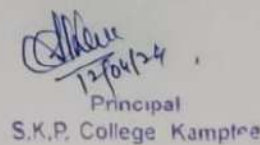 12/04/24
Principal
S.K.P. College Kamptee